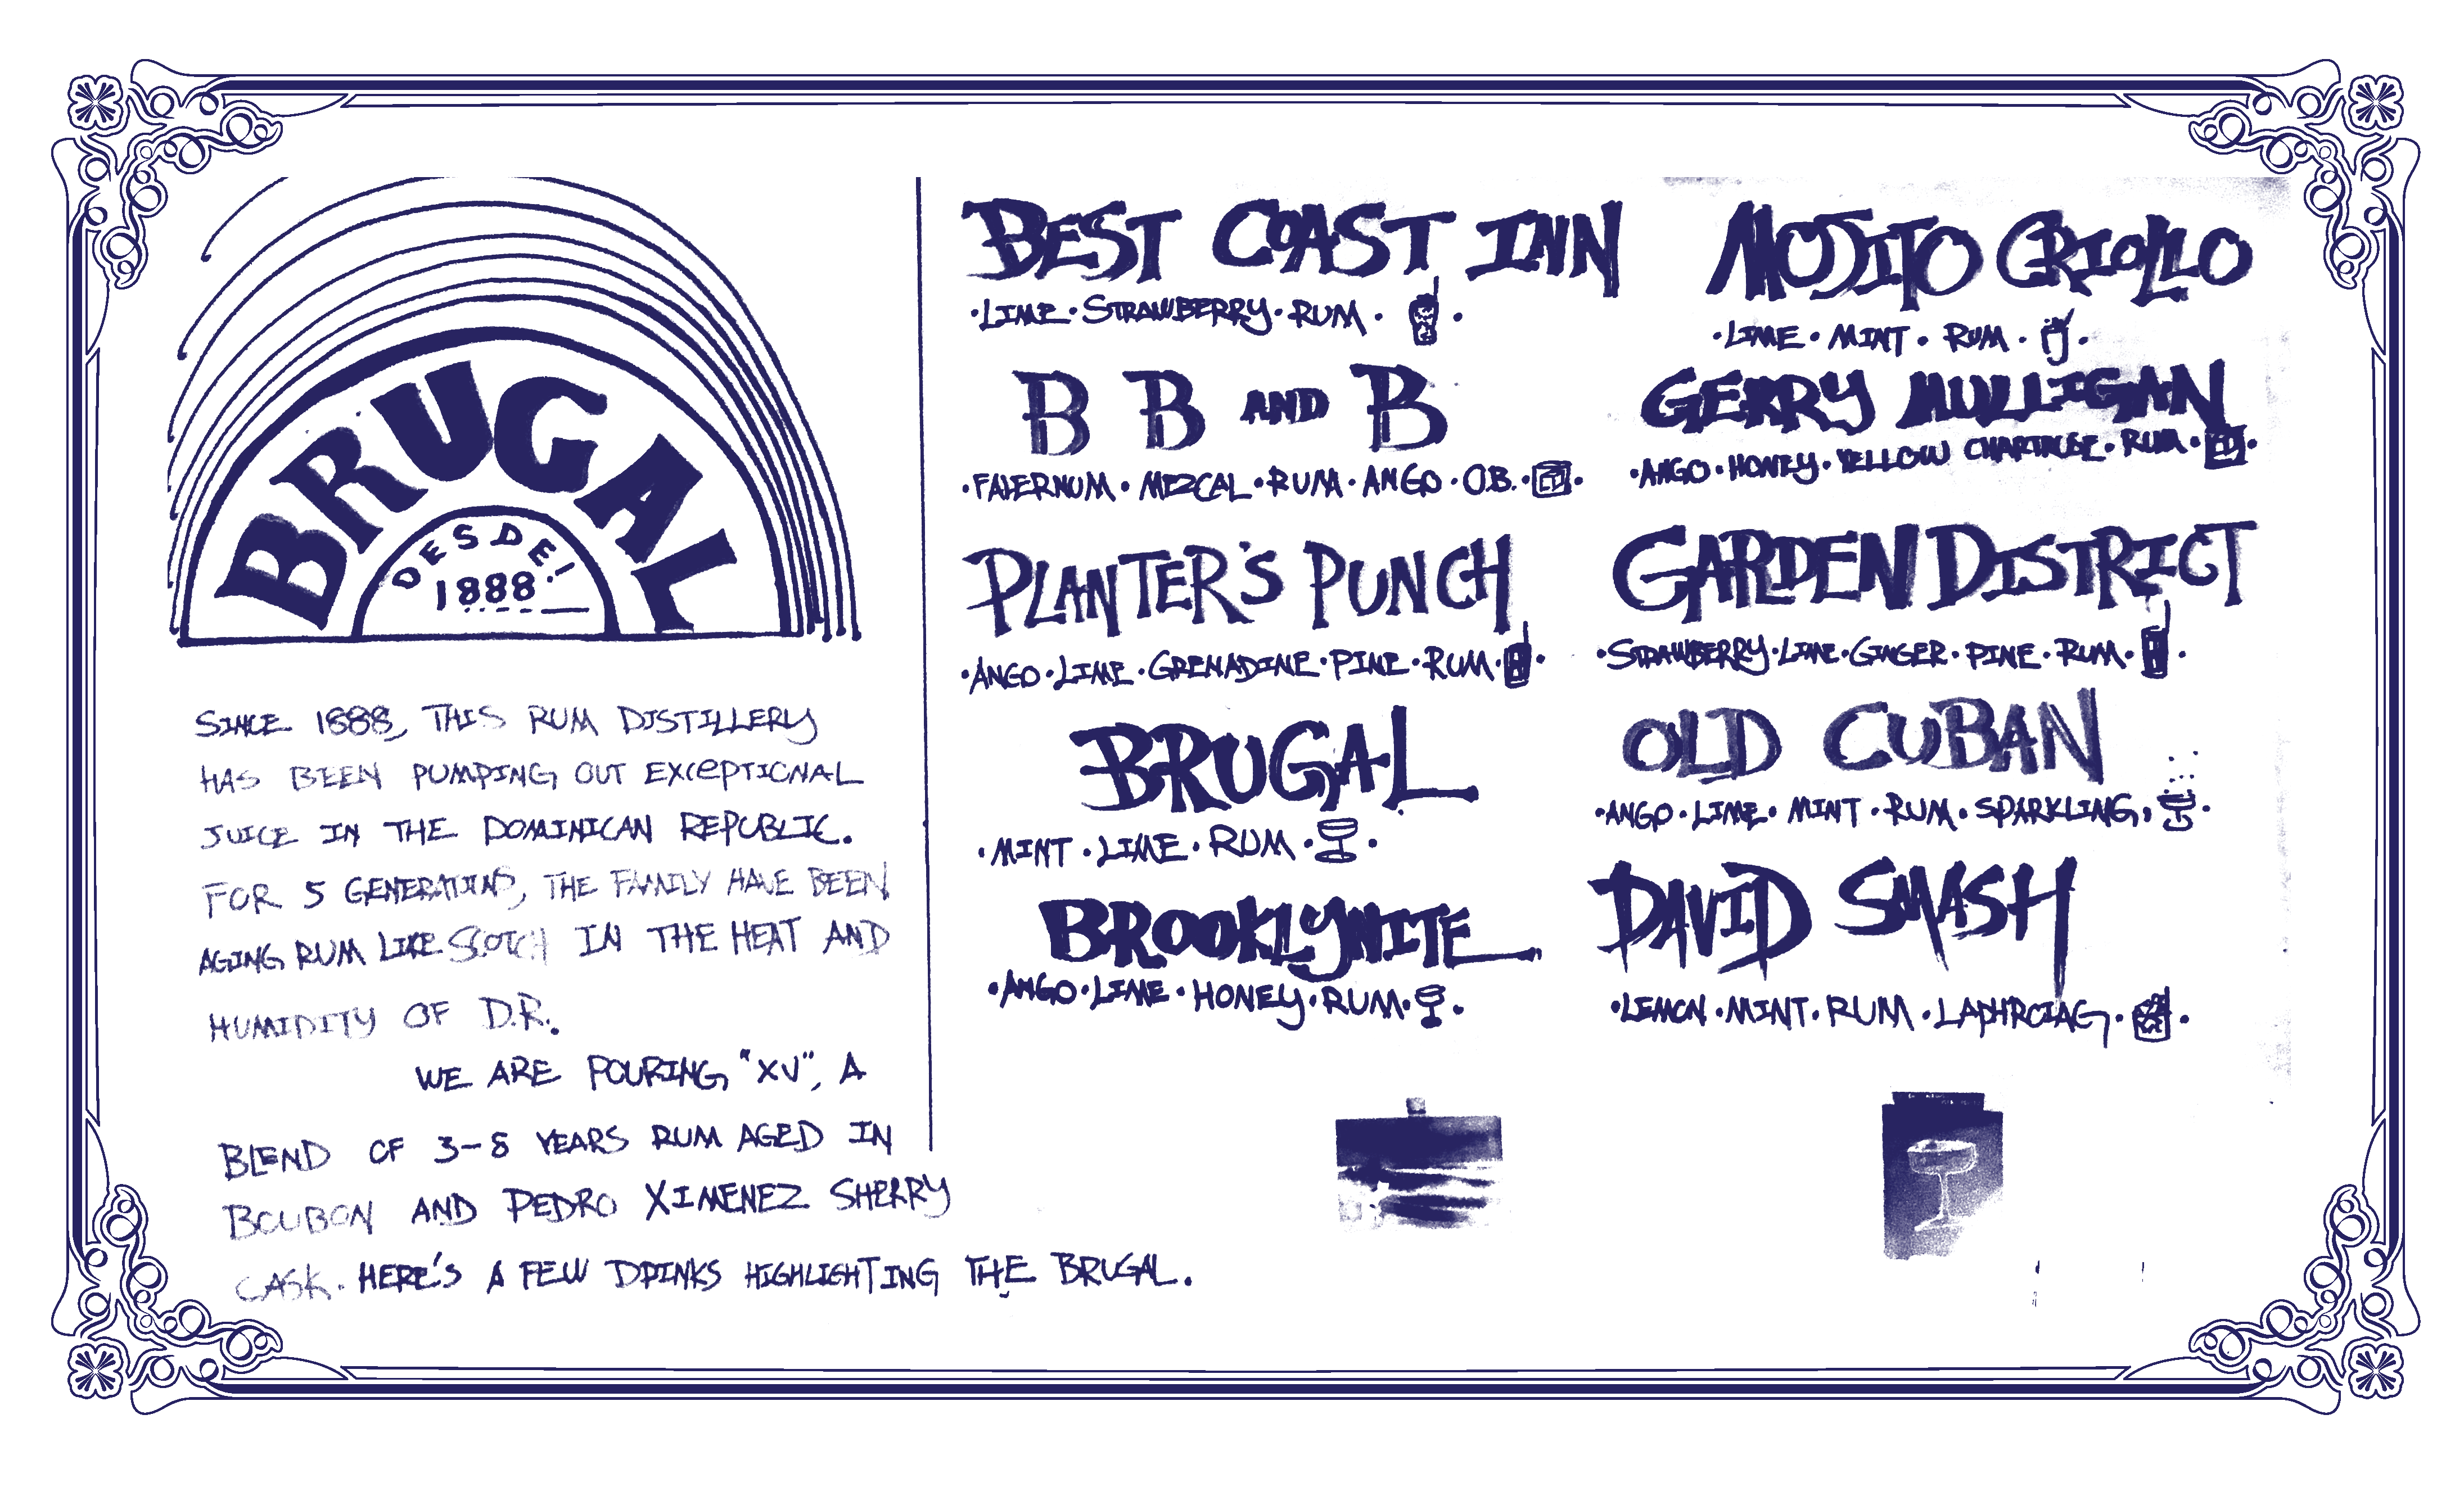 BRUGAL
DESDE
1888
SINCE 1888, THIS RUM DISTILLERY
HAS BEEN PUMPING OUT EXCEPTIONAL
JUICE IN THE DOMINICAN REPUBLIC.
FOR 5 GENERATIONS, THE FAMILY HAVE BEEN
AGING RUM LIKE SCOTCH IN THE HEAT AND
HUMIDITY OF D.R.
WE ARE POURING "XV", A
BLEND OF 3-8 YEARS RUM AGED IN
BOUBON AND PEDRO XIMENEZ SHERRY
CASK. HERE'S A FEW DRINKS HIGHLIGHTING THE BRUGAL.
BEST COAST INN
·LIME·STRAWBERRY·RUM· ·
B B AND B
·FALERNUM·MEZCAL·RUM·ANGO·O.B.· ·
PLANTER'S PUNCH
·ANGO·LIME·GRENADINE·PINE·RUM· ·
BRUGAL
·MINT·LIME·RUM· ·
BROOKLYNITE
·ANGO·LIME·HONEY·RUM· ·
MOJITO CRIOLLO
·LIME·MINT·RUM· ·
GERRY MULLIGAN
·ANGO·HONEY·YELLOW·RUM· ·
GARDEN DISTRICT
·STRAWBERRY·LIME·GINGER·PINE·RUM· ·
OLD CUBAN
·ANGO·LIME·MINT·RUM·SPARKLING· ·
DAVID SMASH
·LEMON·MINT·RUM·LAPHROIAG· ·